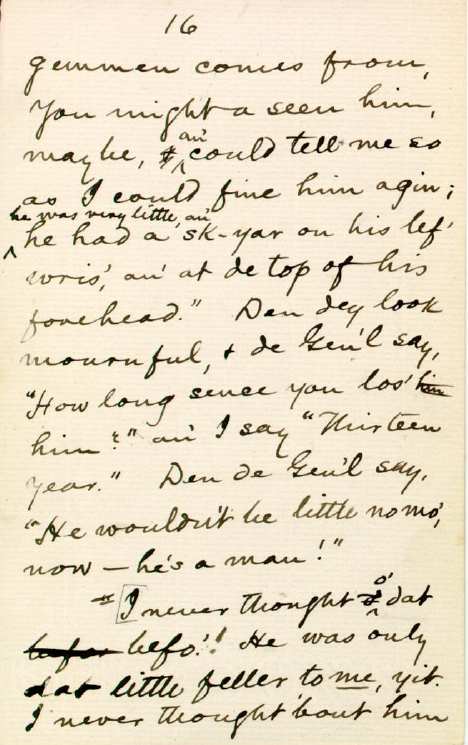 16
gemmen comes from,
You might a seen him,
maybe, & ^an' could tell me so
as I could fine him agin;
^he was very little, an'
he had a sk-yar on his lef'
wris', an' at de top of his
forehead." Den dey look
mournful, & de Gen'l say,
"How long sence you los' him
him?" an' I say "Thirteen
year." Den de Gen'l say,
"He wouldn't be little no mo',
now — he's a man!"
"I never thought ^o' dat
befor befo'! He was ^only
dat little feller to me, yit.
I never thought 'bout him